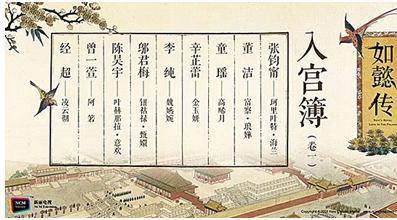 如懿传
入宫簿
(卷一)
张钧甯——珂里叶特·海兰
董洁——富察·琅嬅
童瑶——高晞月
辛芷蕾——金玉妍
李纯——魏嬿婉
邬君梅——钮祜禄·甄嬛
陈昊宇——叶赫那拉·意欢
曾一萱——阿箬
经超——凌云彻
NCM
新丽电视